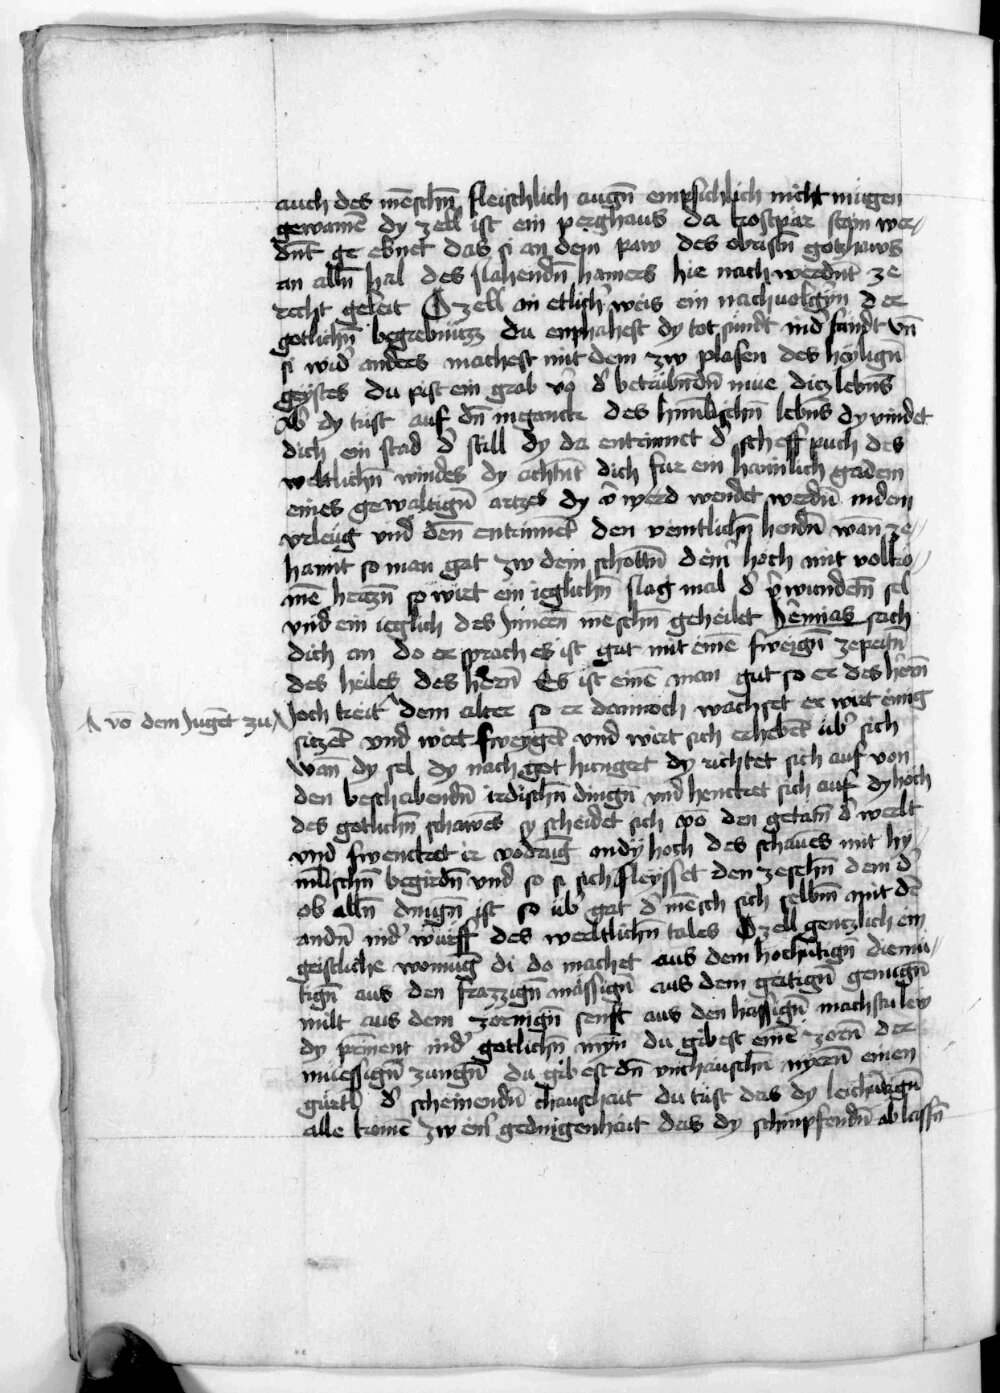 auch des mēschn̄ fleischlich augn̄ empfichlich nicht mügen
gewainē dy zell ist ein perghaus da kostpär stain wer〃
dn̄t ge ebnet das si an dem paw des obristn̄ gotzhaws
an alln̄ hal des slahendn̄ hamers hie nach werdn̄t ze
recht geleit O zell in etlich̾ weis ein nachuolg̾in der
gotlichn̄ begrebnüzz du emphahest dy tot sündt vn̄
si wid̾ anders machest mit dem zw plasen des heylign̄
geystes du pist ein grab vō d̾ betrübn̄dn̄ müe dicz lebn̄s
Ob̾ dy tüst auf dn̄ inganck des himlischn̄ lebn̄s dy vindet
dich ein stad d̾ still dy da entrinnet d̾ scheff puch des
weltlichn̄ windes dy achtn̄t dich fur ein haimlich gadem
eines gewaltign̄ artzes dy v̄ werd wendet werdn̄ indem
vrleüg vnd̾ den̄ entrinnet den veintlichn̄ hendn̄ wan ze〃
hannt so man gat zw dem schottn̄ dein̾ hoch mit volkō〃
mē herczn̄ so wirt ein icglichn̄ slag mal d̾ v̾wundetn̄ sel
vnd ein icglich des Innern̄ mēschn̄ geheilet Jēmias sach
dich an do er sprach es ist gut mit eimē sweign̄ zepeitn̄
des heiles des hern̄ Es ist einē man gut so er des hern̄
Joch treit dem alter so er dannoch wachset er wirt einig
Λ vō dem Jugēt zu
sitzet vnd wirt sweygēt vnd wirt sich erhebēt üb̾ sich
Wan̄ dy sel dy nach got hungert dy richtet sich auf von
den beschebendn̄ irdischn̄ dingn̄ vnd henckt sich auf dy hoch
des gotlichn̄ schawēs sy scheidet sich vō den getatn̄ d̾ werlt
vnd swencket ir vodrūg an dy hoch des schaues mit hy〃
mlischn̄ begirdn̄ vnd so si sich fleysset den zesehn̄ dem d̾
ob alln̄ dingn̄ ist so üb̾ gat d̾ mēsch sich selbm̄ mit dē
andn̄ nid̾ wüerff des werltlichn̄ tales O zell gentzlich ein
geistliche wonūg di do machet aus dem hochūtign̄ diemü〃
tign̄ aus den frazzign̄ mässign̄ aus dem geitign̄ genugn̄
milt aus dem zornign̄ senft aus den hässign̄ machstu lew
dy prinnent ind̾ gotlichn̄ myn du gibest einē zorn̄ der
muessign̄ zungn̄ du gibest dn̄ vnchäuschn̄ nyern̄ einen
gürtl d̾ scheinendn̄ chauschait du tüst das dy leichūtign̄
alle komē zw ein̾ gedingenhait das dy schimpfendn̄ ab lassn̄